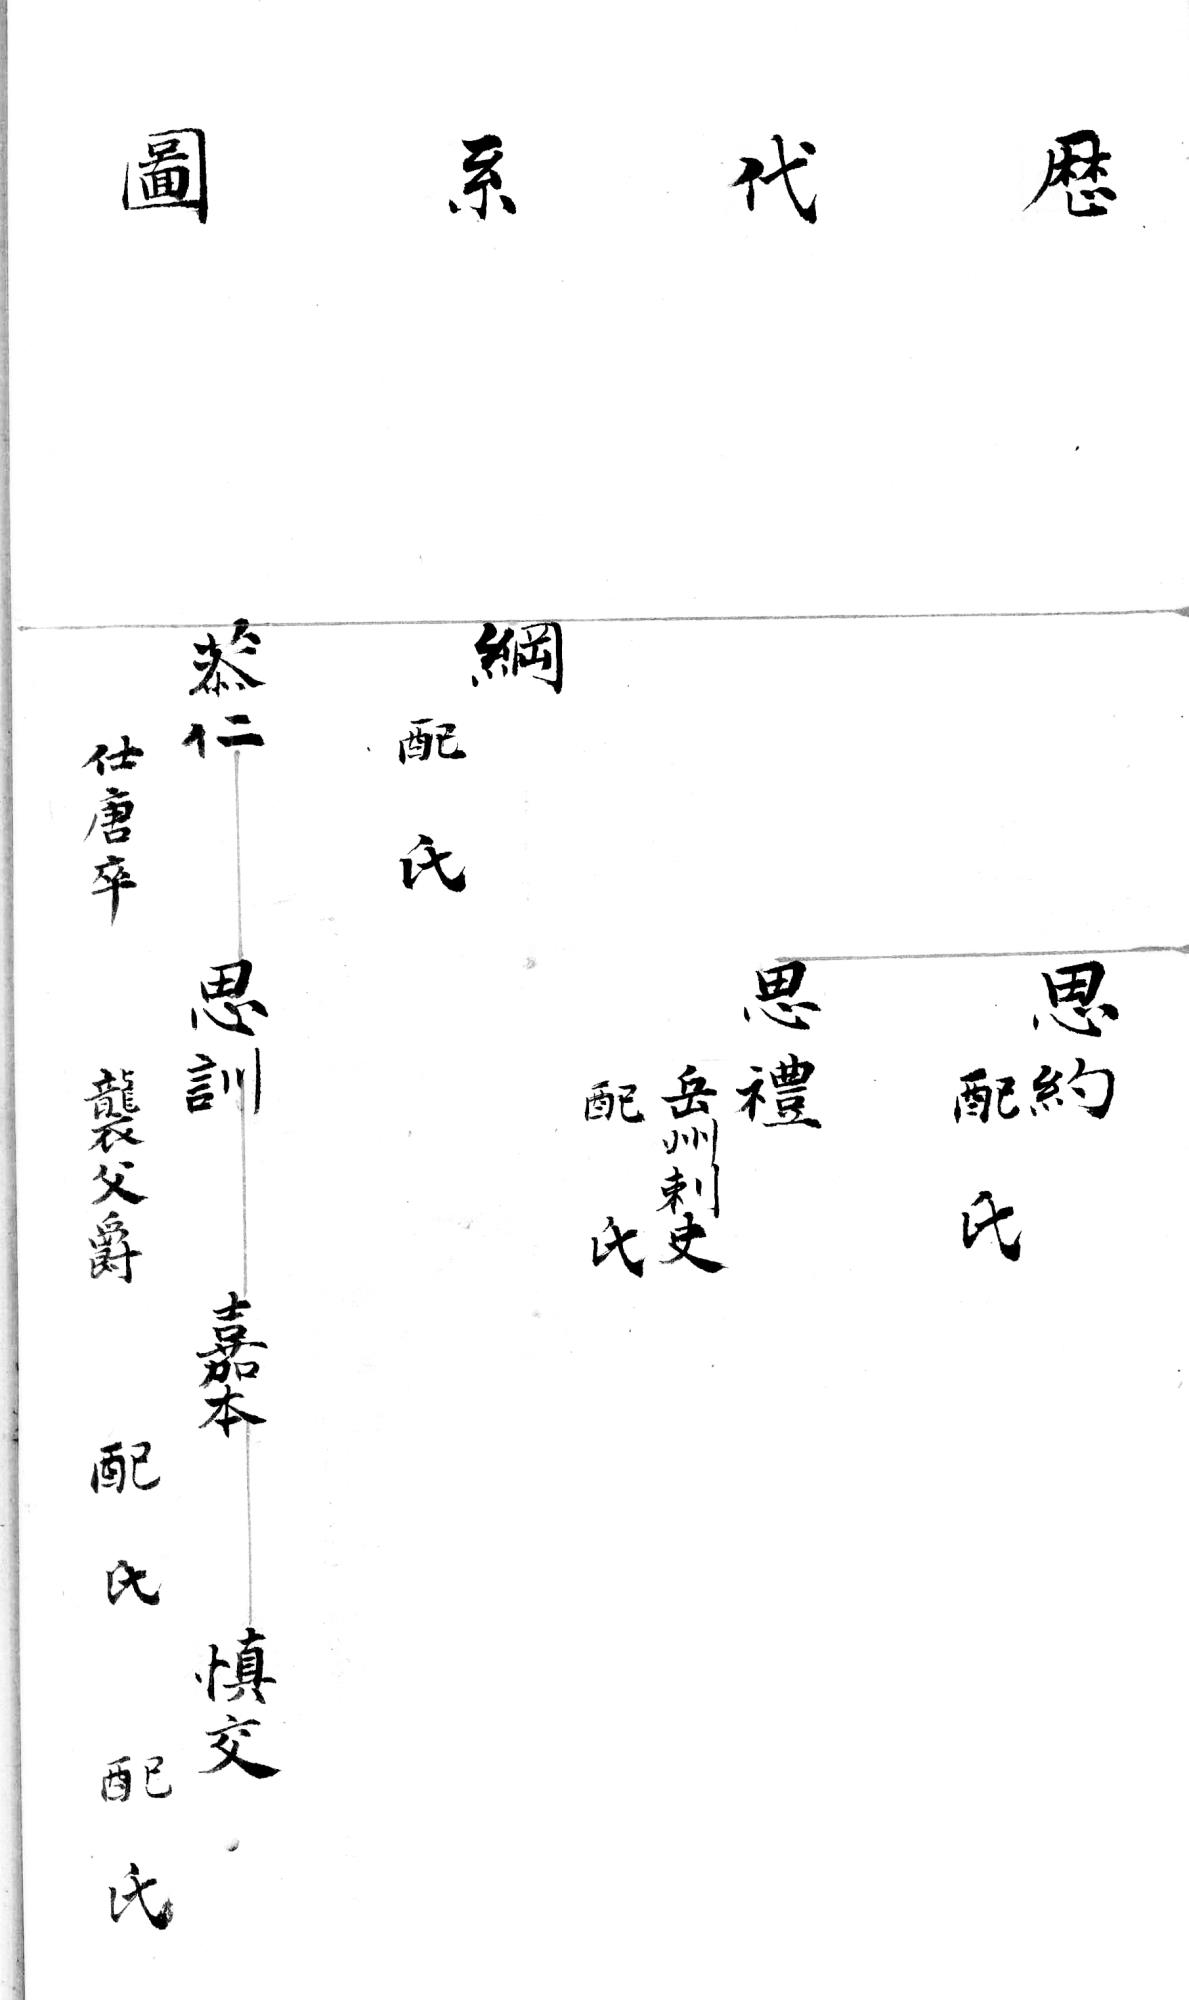 歷代系圖
思約
配 氏
思禮
岳州刺史
配 氏
綱
配 氏
恭仁
仕唐卒
思訓
襲父爵
嘉本
配 氏
慎交
配 氏